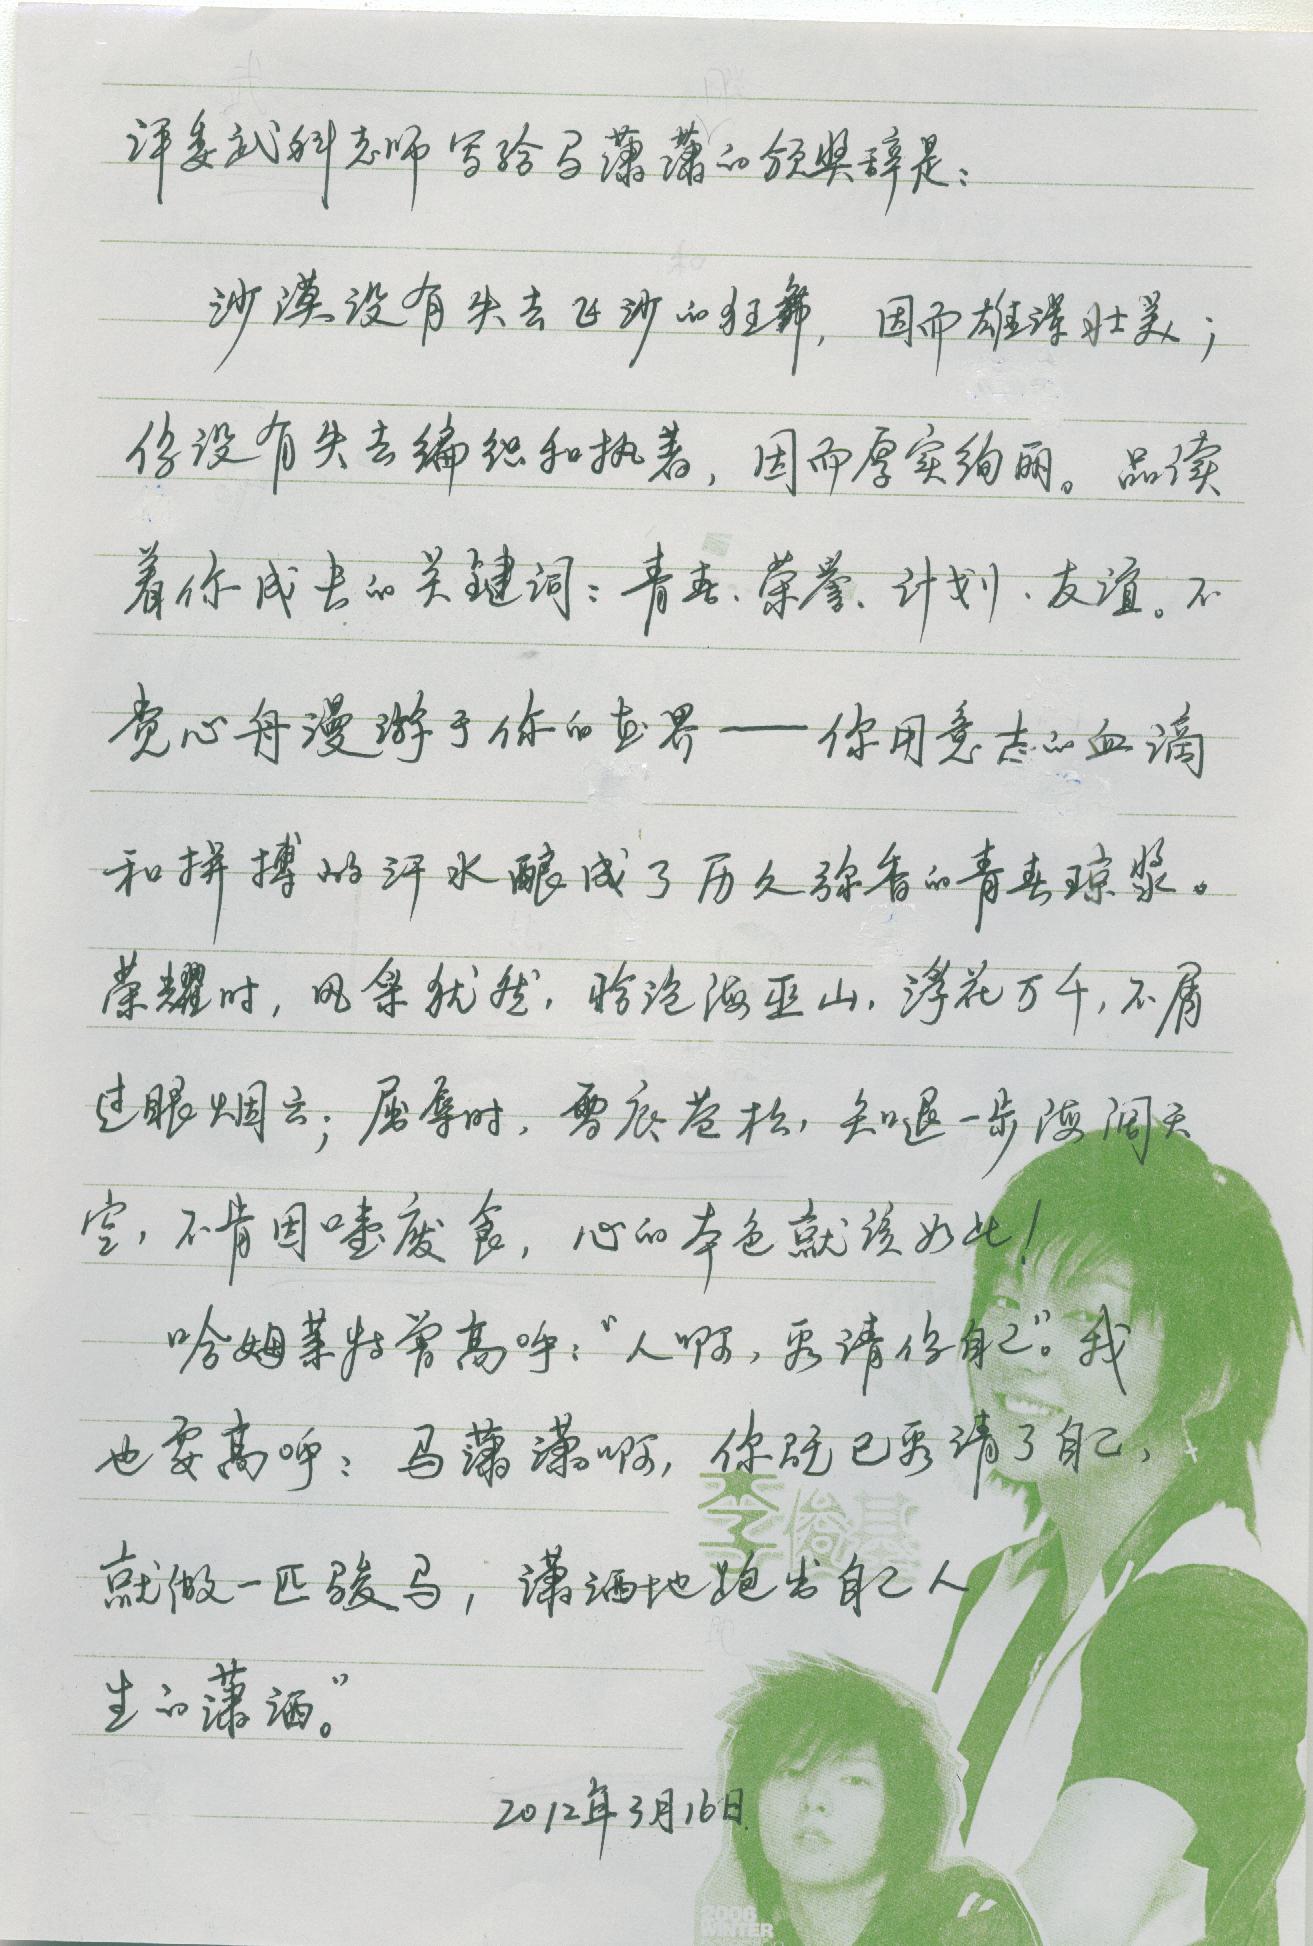 评委武科老师写给马潇潇的颁奖辞是：
沙漠没有失去飞沙的狂舞，因而雄浑壮美；
你没有失去编织和执著，因而厚实绚丽。品读
着你成长的关键词：青春、荣誉、计划、友谊。不
觉心舟漫游于你的世界——你用意志的血滴
和拼搏的汗水酿成了历久弥香的青春琼浆。
荣耀时，风采犹然，聆沧海巫山，浮花万千，不屑
过眼烟云；屈辱时，雪底苍松，知退一步海阔天
空，不肯因噎废食，心的本色就该如此！
哈姆莱特曾高呼：“人啊，认清你自己”。我
也要高呼：马潇潇啊，你既已认清了自己，
就做一匹骏马，潇洒地跑出自己人
生的潇洒。”
2012年3月16日
李俊基
2006
WINTER